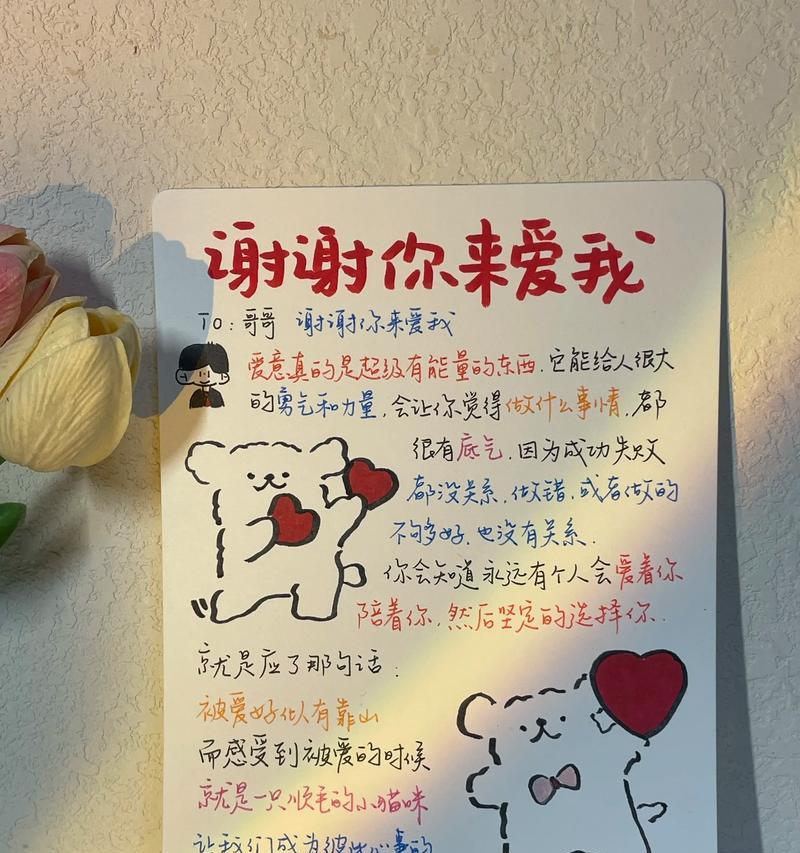 谢谢你来爱我
TO：哥哥 谢谢你来爱我
爱意真的是超级有能量的东西，它能给人很大
的勇气和力量，会让你觉得做什么事情，都
很有底气，因为成功失败
都没关系，做错，或者做的
不够多好，也没有关系，
你会知道永远有个人会爱着你
陪着你，然后坚定的选择你．
就是应了那句话：
被爱好似有靠山
而感受到被爱的时候
就是一只顺毛的小猫咪
让我们成为彼此心事的